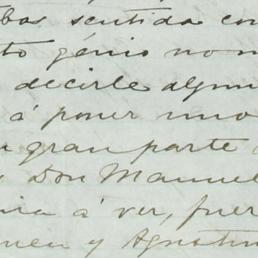 bas sentida con
to génio no m
decirle algun
á poner uno
gran parte
Don Manuel
á ver, fuer
y Agustin